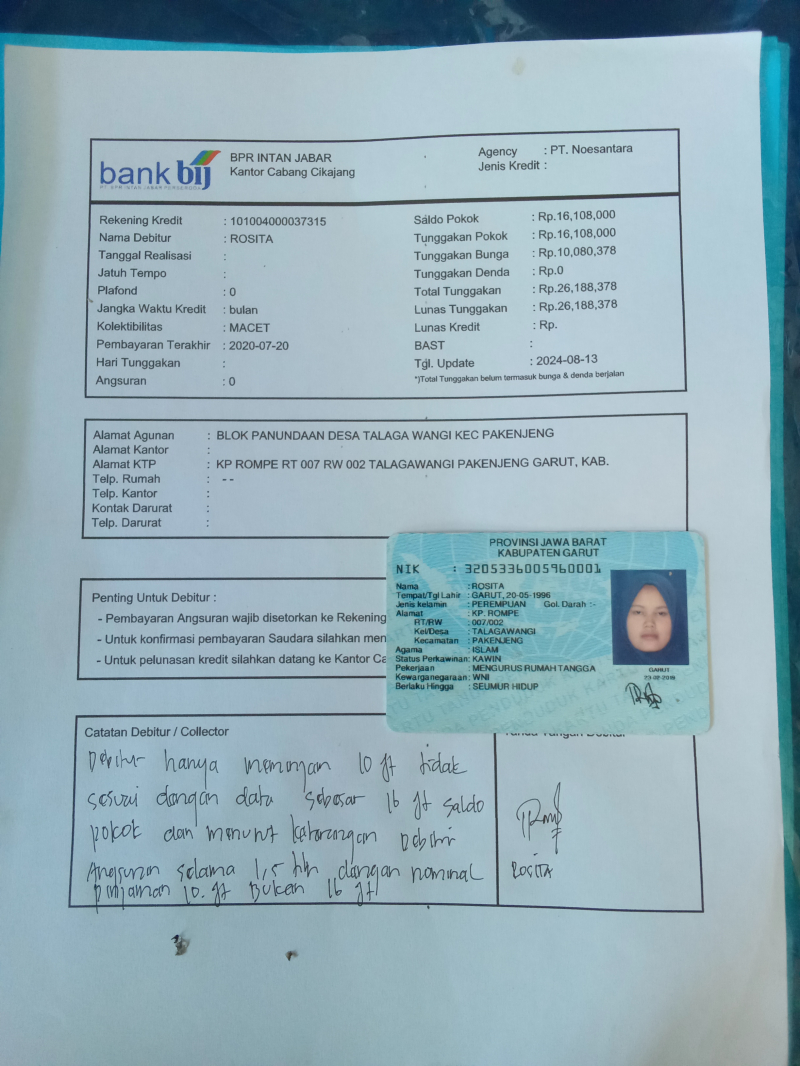 bank bij
PT BPR INTAN JABAR PERSERODA
BPR INTAN JABAR
Kantor Cabang Cikajang
Agency : PT. Noesantara
Jenis Kredit :
Rekening Kredit : 101004000037315
Nama Debitur : ROSITA
Tanggal Realisasi :
Jatuh Tempo :
Plafond : 0
Jangka Waktu Kredit : bulan
Kolektibilitas : MACET
Pembayaran Terakhir : 2020-07-20
Hari Tunggakan :
Angsuran : 0
Saldo Pokok : Rp.16,108,000
Tunggakan Pokok : Rp.16,108,000
Tunggakan Bunga : Rp.10,080,378
Tunggakan Denda : Rp.0
Total Tunggakan : Rp.26,188,378
Lunas Tunggakan : Rp.26,188,378
Lunas Kredit : Rp.
BAST :
Tgl. Update : 2024-08-13
*)Total Tunggakan belum termasuk bunga & denda berjalan
Alamat Agunan : BLOK PANUNDAAN DESA TALAGA WANGI KEC PAKENJENG
Alamat Kantor :
Alamat KTP : KP ROMPE RT 007 RW 002 TALAGAWANGI PAKENJENG GARUT, KAB.
Telp. Rumah : --
Telp. Kantor :
Kontak Darurat :
Telp. Darurat :
Penting Untuk Debitur :
- Pembayaran Angsuran wajib disetorkan ke Rekening
- Untuk konfirmasi pembayaran Saudara silahkan men
- Untuk pelunasan kredit silahkan datang ke Kantor Ca
PROVINSI JAWA BARAT
KABUPATEN GARUT
NIK : 3205336005960001
Nama : ROSITA
Tempat/Tgl Lahir : GARUT, 20-05-1996
Jenis kelamin : PEREMPUAN Gol. Darah :-
Alamat : KP. ROMPE
RT/RW : 007/002
Kel/Desa : TALAGAWANGI
Kecamatan : PAKENJENG
Agama : ISLAM
Status Perkawinan: KAWIN
Pekerjaan : MENGURUS RUMAH TANGGA
Kewarganegaraan: WNI
Berlaku Hingga : SEUMUR HIDUP
GARUT
Catatan Debitur / Collector
Debitur hanya meminjam 10 jt tidak
sesuai dengan data sebesar 16 jt saldo
pokok dan menurut keterangan Debitur
Angsuran selama 1,5 thn dengan nominal
pinjaman 10. jt Bukan 16 jt
ROSITA